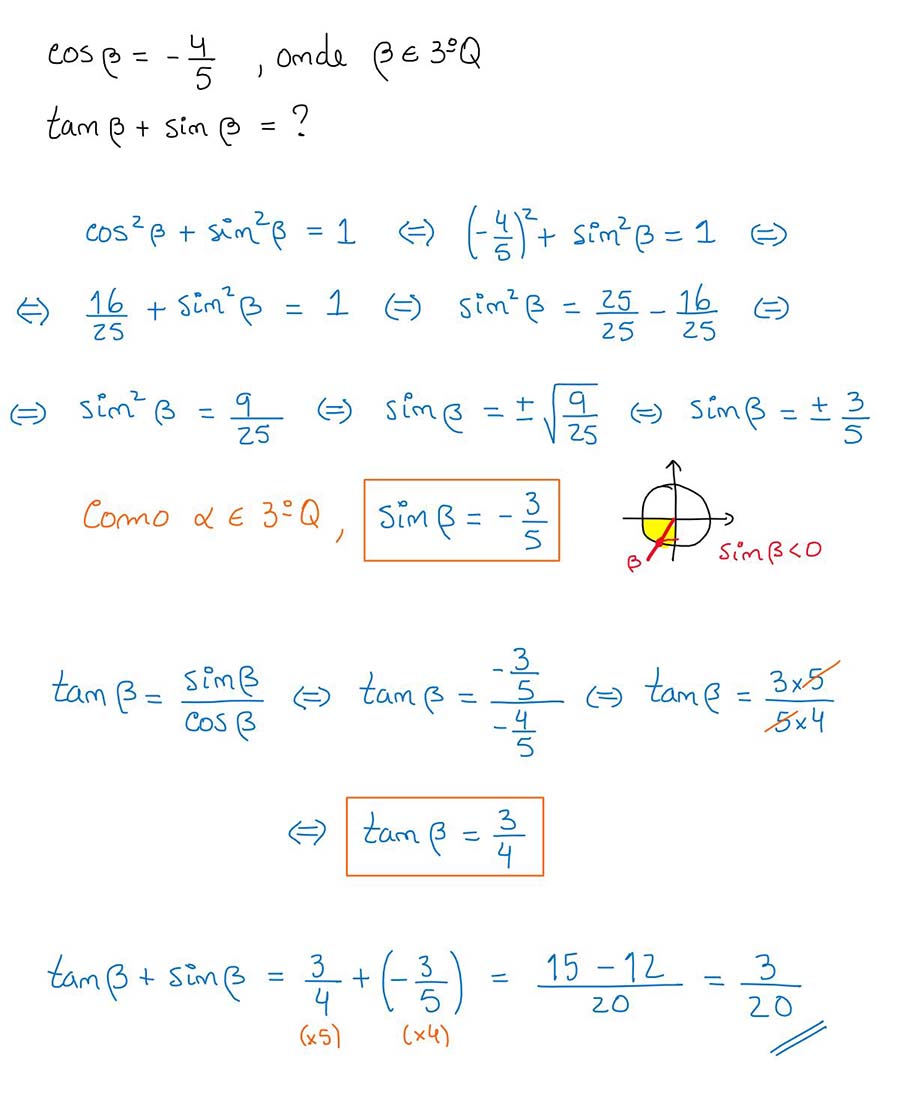 cos β = - 4/5 , onde β ∈ 3ºQ
tan β + sin β = ?
cos² β + sin² β = 1 ⇔ (- 4/5)² + sin² β = 1 ⇔
⇔ 16/25 + sin² β = 1 ⇔ sin² β = 25/25 - 16/25 ⇔
⇔ sin² β = 9/25 ⇔ sin β = ± √(9/25) ⇔ sin β = ± 3/5
Como α ∈ 3ºQ, sin β = - 3/5
β sin β < 0
tan β = sin β/cos β ⇔ tan β = (- 3/5)/(- 4/5) ⇔ tan β = (3×5)/(5×4)
⇔ tan β = 3/4
tan β + sin β = 3/4 + (- 3/5) = (15 - 12)/20 = 3/20
(×5) (×4)